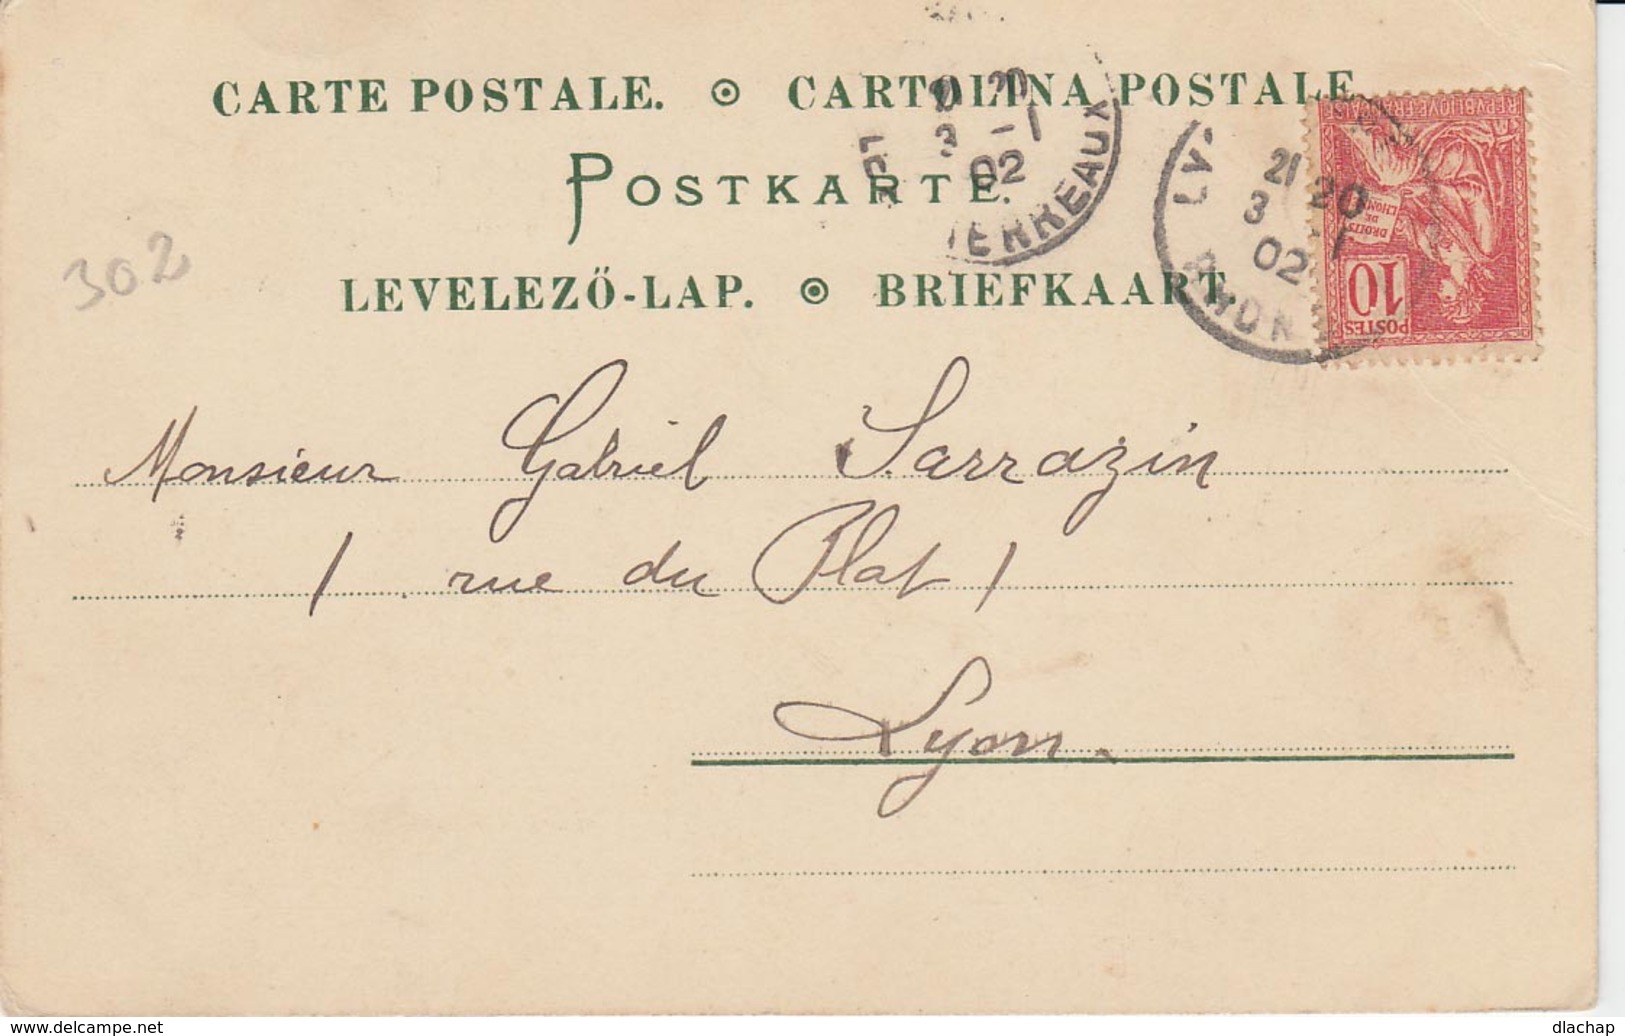 CARTE POSTALE. ⊙ CARTOLINA POSTALE
POSTKARTE.
LEVELEZŐ-LAP. ⊙ BRIEFKAART.
20
3 -1
02
TERREAUX
21 20
3 -1
02
RHONE
REPVBLIQVE FRANCAISE
DROITS
DE
L'HOMME
10
POSTES
302
Monsieur Gabriel Sarrazin
1 rue du Plat 1
Lyon.
www.delcampe.net
dlachap